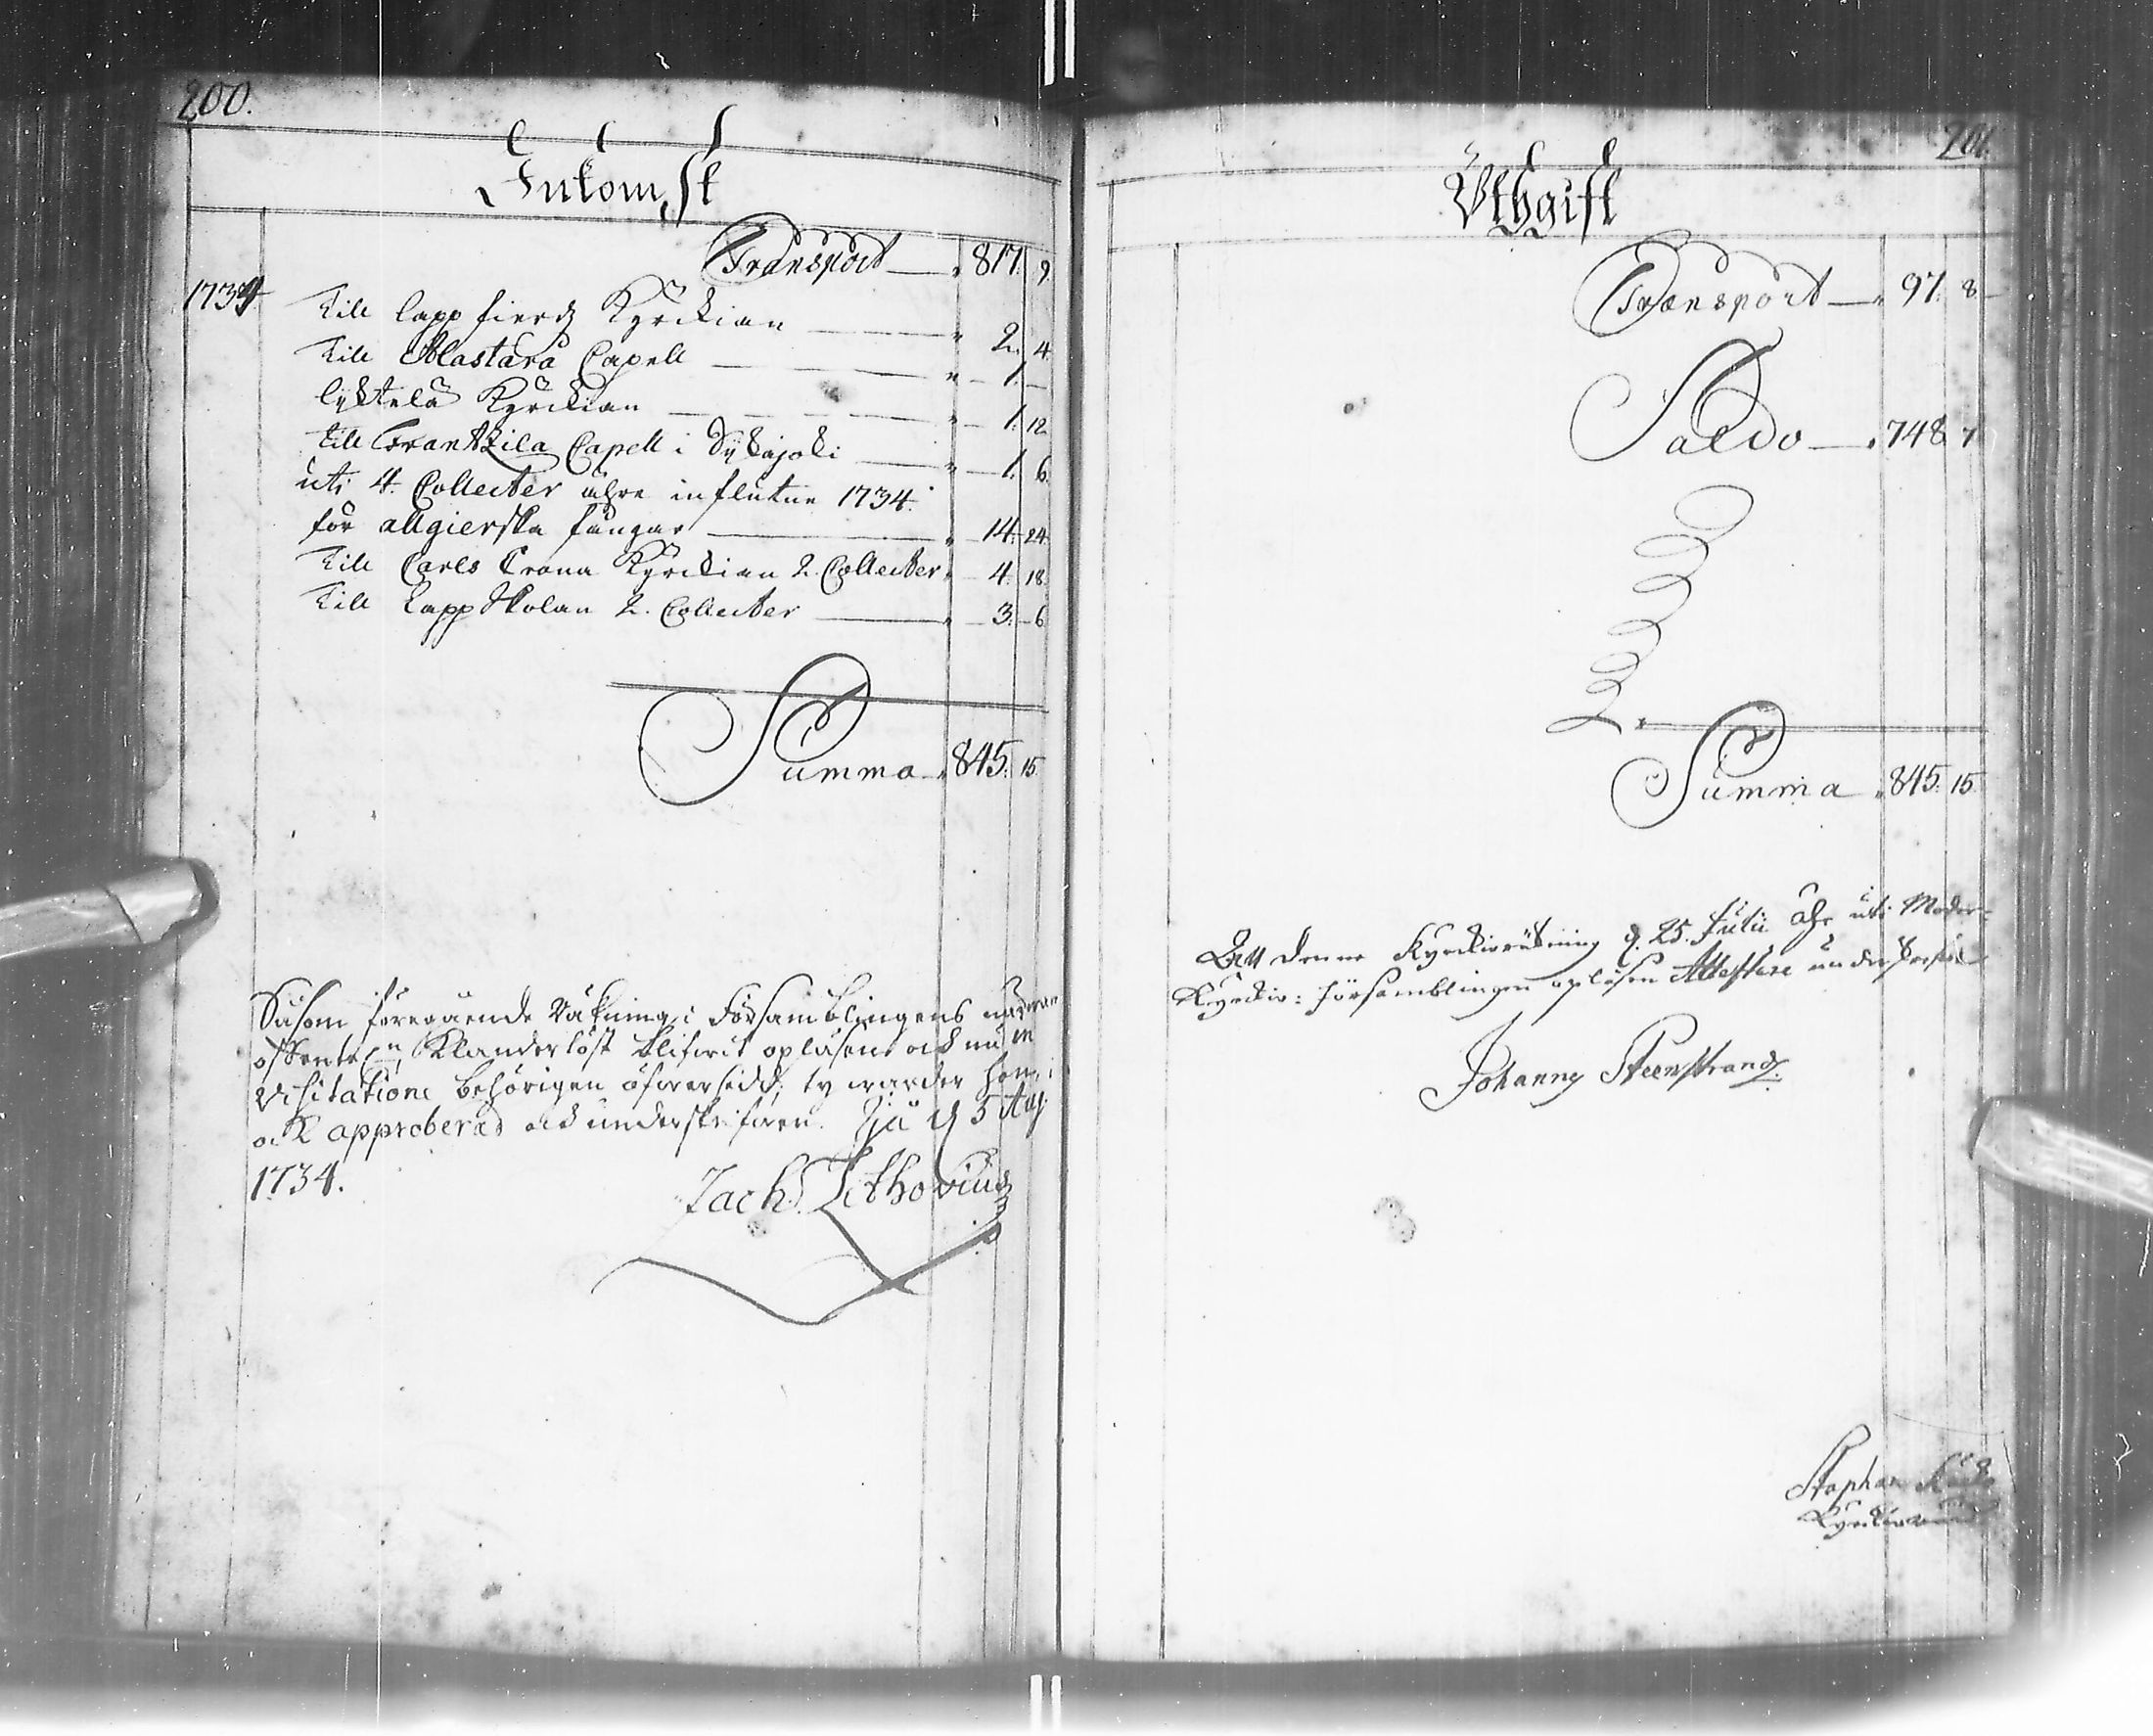 200.
Inkomst
Transport — 817. 9.
1734. Till Lappfierds Kyrckian — 2. 4.
Till Alastara Capell — 1. —
Lyktelä Kyrckian — 1. 12.
till Frantzila Capell i Sijkajoki — 1. 6.
uti 4. Collecter åhre influtne 1734.
för allgierska fångar — 14. 24.
Till Carls Crona Kyrckian 2. Collecter 4. 18.
Till Lapp Skolan 2. Collecter — 3. 6.
Summa 845. 15.
Såsom föregående Räkning i Församblingens närwaro
oklandertlöst blifwit opläsen och nu in
Visitatione behörigen öfwersedd; ty warder hon
ock approberad och underskrifwen. Ijå d 5 Aug.
1734.
Zach. Lithovius
201.
Uthgift
Transport — 97. 8.
Saldo — 748. 7.
Summa 845. 15.
Att denne Kyrckioräkning d. 25. Julii åhr uti Moder-
Kyrckio: församblingen opläsen Attestera underskrifne
Johannes Steenstrand.
Staphan